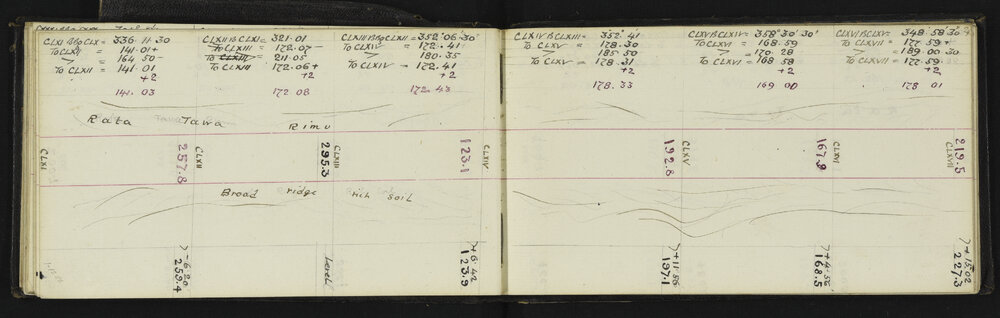 CLXI BS to CLX = 336.11.30
To CLXII = 141.01+
> = 164.50-
To CLXII = 141.01
+2
141.03
CLXII BS CLXI = 321.01
To CLXIII = 172.07-
> = 211.05
To CLXIII = 172.06+
+2
172 08
CLXIII BS to CLXII = 352°.06.30"
To CLXIV = 172.41-
> 180.35
To CLXIV - 172.41
+2
172.43
CLXIV BS CLXIII = 352'.41
To CLXV = 178.30
> = 185.50
To CLXV = 178.31
+2
178.33
CLXV BS CLXIV = 358°30'30"
To CLXVI = 168.59
> = 170.28
To CLXVI = 168 58
+2
169 00
CLXVI BS CLXV = 348.58'.30"
To CLXVII = 177.59+
> = 189 00.30
To CLXVII = 177.59-
+2
178 01
Rata Tawa Rimu
CLXI
257.8 CLXII
295.3 CLXIII
123.1 CLXIV
192.8 CLXV
167.9 CLXVI
219.5 CLXVII
Broad ridge rich soil
>-6.20
259.4
Level
>+6.42
123.9
>+11.56
197.1
>+4.56
168.5
>+15.02
227.3